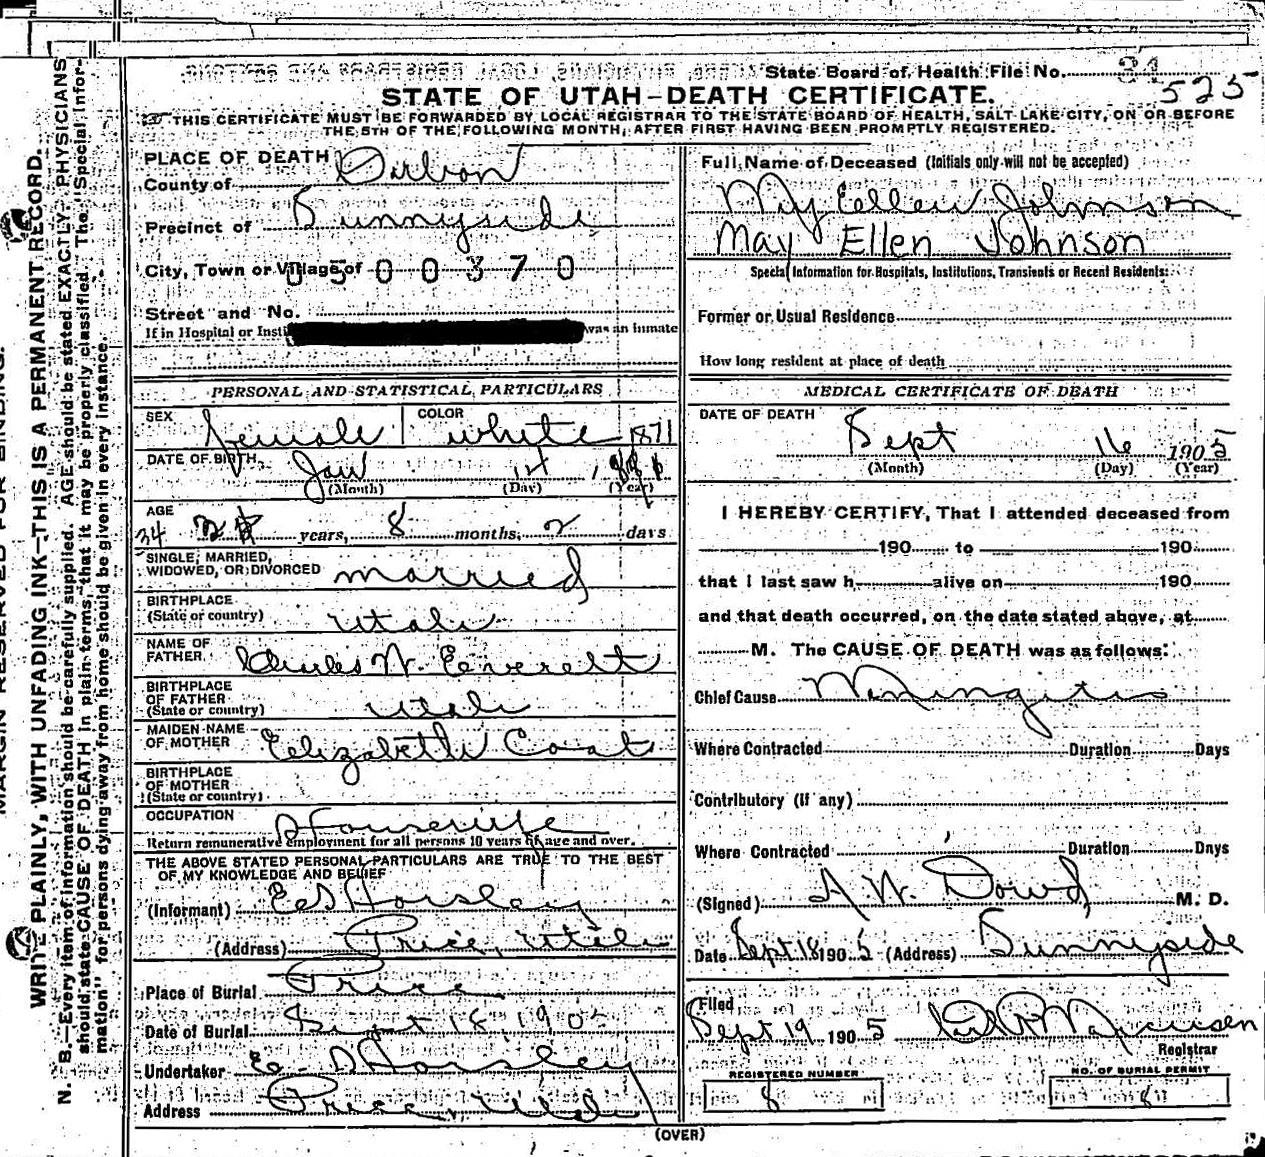 State Board of Health File No. 34
525
STATE OF UTAH-DEATH CERTIFICATE.
THIS CERTIFICATE MUST BE FORWARDED BY LOCAL REGISTRAR TO THE STATE BOARD OF HEALTH, SALT LAKE CITY, ON OR BEFORE
THE 5TH OF THE FOLLOWING MONTH, AFTER FIRST HAVING BEEN PROMPTLY REGISTERED.
PLACE OF DEATH
County of Carbon
Precinct of Sunnyside
City, Town or Village of 0 5 0 0 3 7 0
Street and No.
If in Hospital or Insti was an inmate
PERSONAL AND STATISTICAL PARTICULARS
SEX female COLOR white
1871
DATE OF BIRTH Jan 14
(Month) (Day) (Year)
AGE
34 years, 8 months, 2 days
SINGLE, MARRIED,
WIDOWED, OR DIVORCED married
BIRTHPLACE
(State or country) Utah
NAME OF
FATHER Charles W. Everett
BIRTHPLACE
OF FATHER
(State or country) Utah
MAIDEN NAME
OF MOTHER Elizabeth Coat
BIRTHPLACE
OF MOTHER
(State or country)
OCCUPATION Housewife
Return remunerative employment for all persons 10 years of age and over.
THE ABOVE STATED PERSONAL PARTICULARS ARE TRUE TO THE BEST
OF MY KNOWLEDGE AND BELIEF
(Informant) E S Horsley
(Address) Price, Utah
Place of Burial Price
Date of Burial Sept 18 1905
Undertaker E S Horsley
Address Price, Utah
Full Name of Deceased (Initials only will not be accepted)
May Ellen Johnson
May Ellen Johnson
Special Information for Hospitals, Institutions, Transients or Recent Residents:
Former or Usual Residence
How long resident at place of death
MEDICAL CERTIFICATE OF DEATH
DATE OF DEATH
Sept 16 1905
(Month) (Day) (Year)
I HEREBY CERTIFY, That I attended deceased from
190 to 190
that I last saw h alive on 190
and that death occurred, on the date stated above, at
M. The CAUSE OF DEATH was as follows:
Chief Cause Meningitis
Where Contracted Duration Days
Contributory (if any)
Where Contracted Duration Days
(Signed) A. W. Dowd, M. D.
Date Sept 18 1905 (Address) Sunnyside
Filed
Sept 19 1905
Registrar
REGISTERED NUMBER
8
NO. OF BURIAL PERMIT
8
(OVER)
MARGIN RESERVED FOR BINDING.
WRITE PLAINLY, WITH UNFADING INK—THIS IS A PERMANENT RECORD.
N. B.—Every item of information should be carefully supplied. AGE should be stated EXACTLY. PHYSICIANS
should state CAUSE OF DEATH in plain terms, that it may be properly classified. The "Special Infor-
mation" for persons dying away from home should be given in every instance.